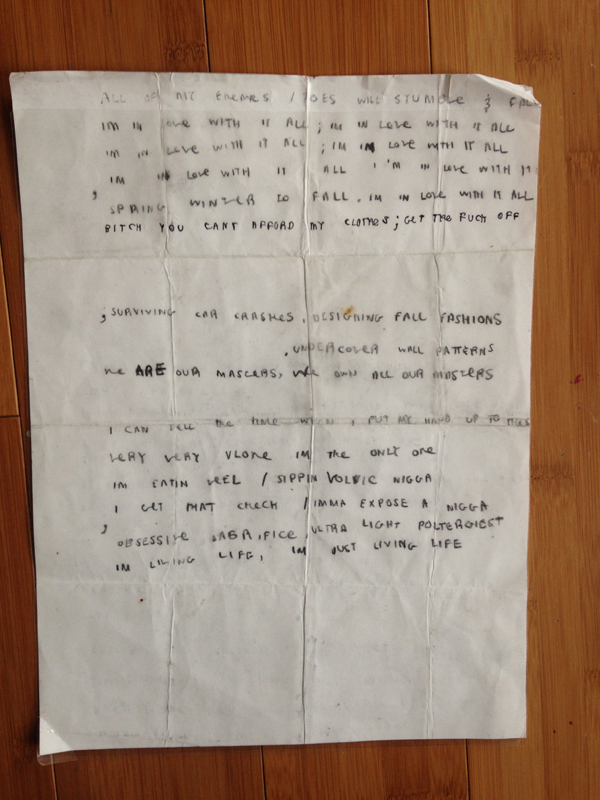 ALL OF MY ENEMES / FOES WILL STUMBLE & FALL
IM IN LOVE WITH IT ALL ; IM IN LOVE WITH IT ALL
IM IN LOVE WITH IT ALL ; IM IN LOVE WITH IT ALL
IM IN LOVE WITH IT ALL I'M IN LOVE WITH IT
, SPRING WINTER TO FALL . IM IN LOVE WITH IT ALL
BITCH YOU CANT AFFORD MY CLOTHES ; GET THE FUCK OFF
; SURVIVING CAR CRASHES . DESIGNING FALL FASHIONS
. UNDERCOVER WALL PATTERNS
WE ARE OUR MASTERS, WE OWN ALL OUR MASTERS
I CAN TELL THE TIME WHEN I PUT MY HAND UP TO
VERY VERY VLONE IM THE ONLY ONE
IM EATIN VEEL / SIPPIN VOLVIC NIGGA
I GET THAT CHECK / IMMA EXPOSE A NIGGA
, OBSESSIVE SACRIFICE , ULTRA LIGHT POLTERGIEST
IM LIVING LIFE, IM JUST LIVING LIFE